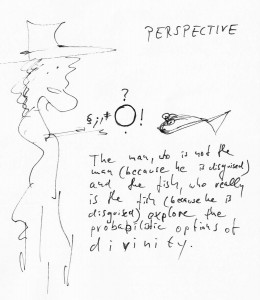 PERSPECTIVE
?
§;!* O !
The man, who is not the
man (because he is disguised)
and the fish, who really
is the fish (because he is
disguised) explore the
probabilistic options of
divinity.